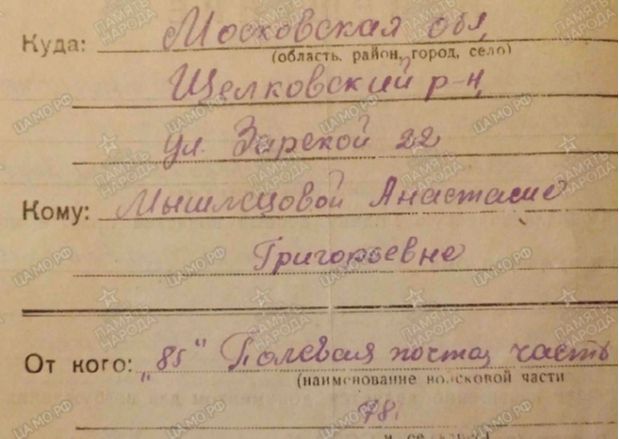 Куда: Московская обл,
(область, район, город, село)
Щелковский р-н,
ул. Зарекой 22
Кому: Мышлецовой Анастасие
Григорьевне
От кого: "85" Полевая почта, часть
(наименование войсковой части
78.
ПАМЯТЬ НАРОДА
ЦАМО.РФ